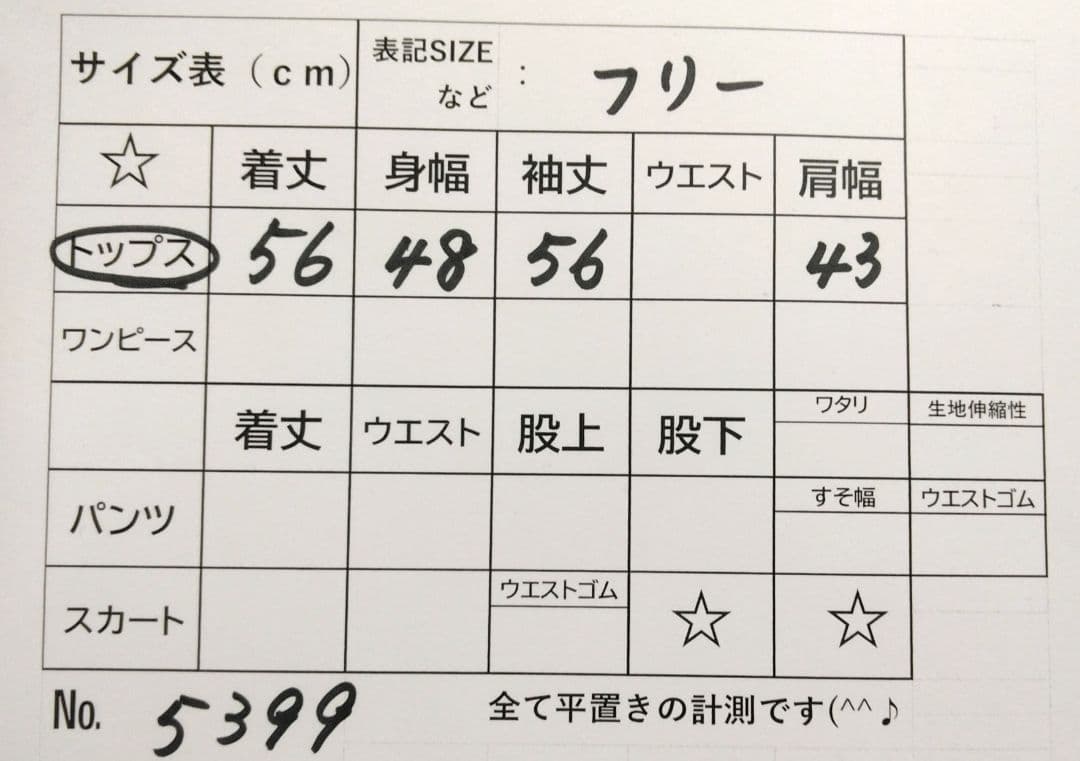 サイズ表（ｃｍ） 表記SIZE
など : フリー
☆ 着丈 身幅 袖丈 ウエスト 肩幅
トップス 56 48 56 43
ワンピース
着丈 ウエスト 股上 股下 ワタリ 生地伸縮性
パンツ すそ幅 ウエストゴム
スカート ウエストゴム ☆ ☆
No. 5399 全て平置きの計測です(^^♪